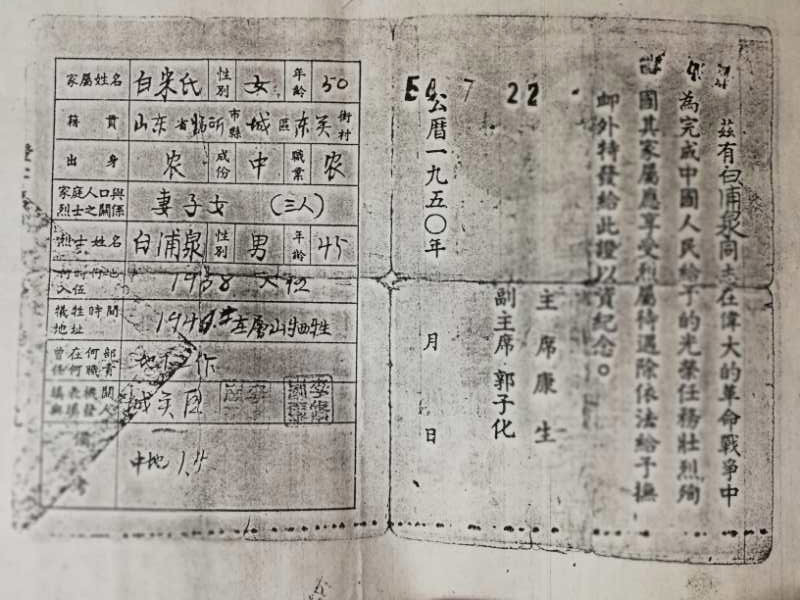 茲有白浦泉同志在偉大的革命戰爭中
為完成中國人民給予的光榮任務壯烈殉
國其家屬應享受烈屬待遇除依法給予撫
卹外特發給此證以資紀念。
主席康生
副主席郭子化
公曆一九五〇年 月 日
22
家屬姓名 白宋氏 性別 女 年齡 50
籍貫 山东省临沂市縣城區东关街村
出身 农 成份 中 職業 农
家庭人口與烈士之關係 妻子女 (三人)
烈士姓名 白浦泉 性別 男 年齡 45
入伍 1938
犧牲時間地址 牺牲
曾在何部任何職責 作
填表機關與填發人
備考 中地